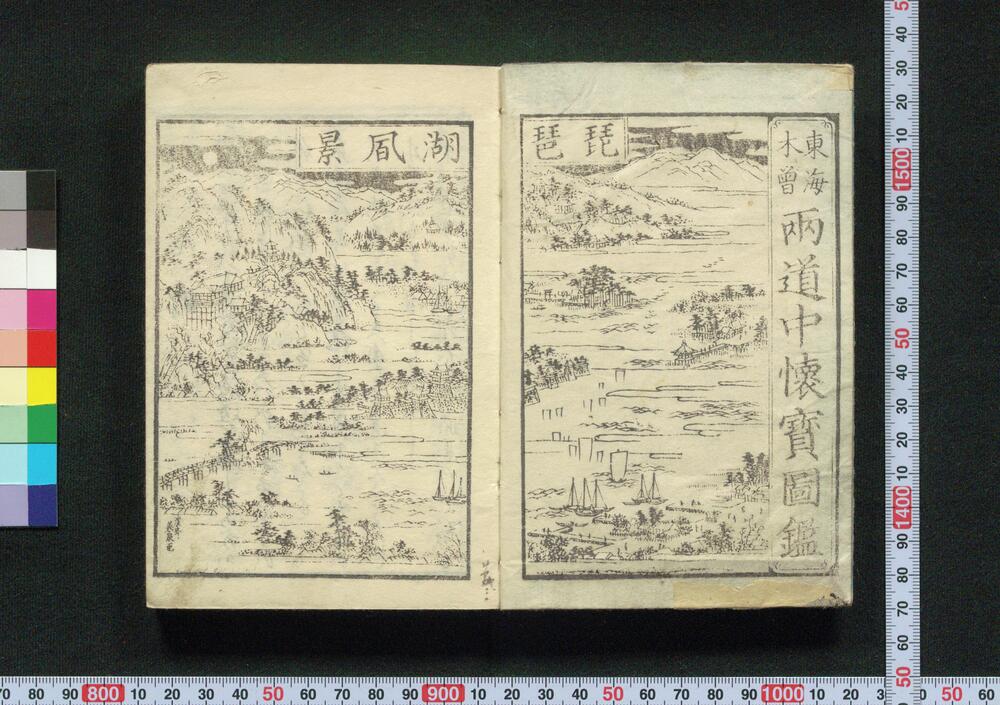 東海
木曾
兩道中懷寶圖鑑
琵琶
湖風景
50
40
30
20
10
1500
90
80
70
60
50
40
30
20
10
1400
90
80
70
60
50
70 80 90 800 10 20 30 40 50 60 70 80 90 900 10 20 30 40 50 60 70 80 90 1000 10 20 30 40 50 60